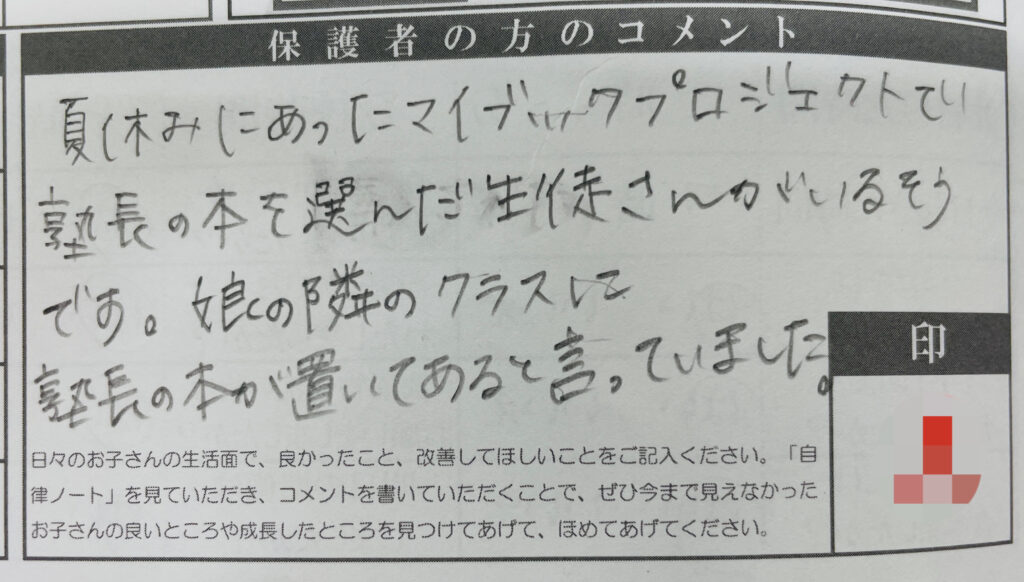 保護者の方のコメント
夏休みにあったマイブックプロジェクトでい
塾長の本を選んだ生徒さんがいるそう
です。娘の隣のクラスに
塾長の本が置いてあると言っていました。
印
日々のお子さんの生活面で、良かったこと、改善してほしいことをご記入ください。「自
律ノート」を見ていただき、コメントを書いていただくことで、ぜひ今まで見えなかった
お子さんの良いところや成長したところを見つけてあげて、ほめてあげてください。